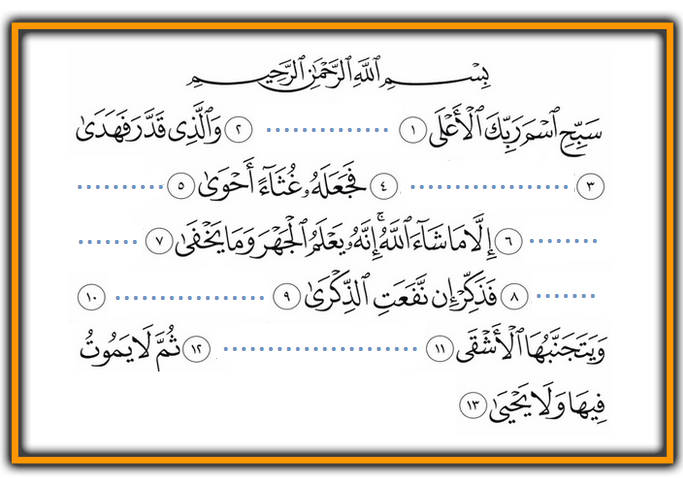 بِسْمِ ٱللَّهِ ٱلرَّحْمَٰنِ ٱلرَّحِيمِ
سَبِّحِ ٱسْمَ رَبِّكَ ٱلْأَعْلَى ١ .............. ٢ وَٱلَّذِى قَدَّرَ فَهَدَىٰ
٣ .................. ٤ فَجَعَلَهُۥ غُثَآءً أَحْوَىٰ ٥ ..........
........ ٦ إِلَّا مَا شَآءَ ٱللَّهُ ۚ إِنَّهُۥ يَعْلَمُ ٱلْجَهْرَ وَمَا يَخْفَىٰ ٧ ........
........ ٨ فَذَكِّرْ إِن نَّفَعَتِ ٱلذِّكْرَىٰ ٩ ................. ١٠
وَيَتَجَنَّبُهَا ٱلْأَشْقَى ١١ ...................... ١٢ ثُمَّ لَا يَمُوتُ
فِيهَا وَلَا يَحْيَىٰ ١٣